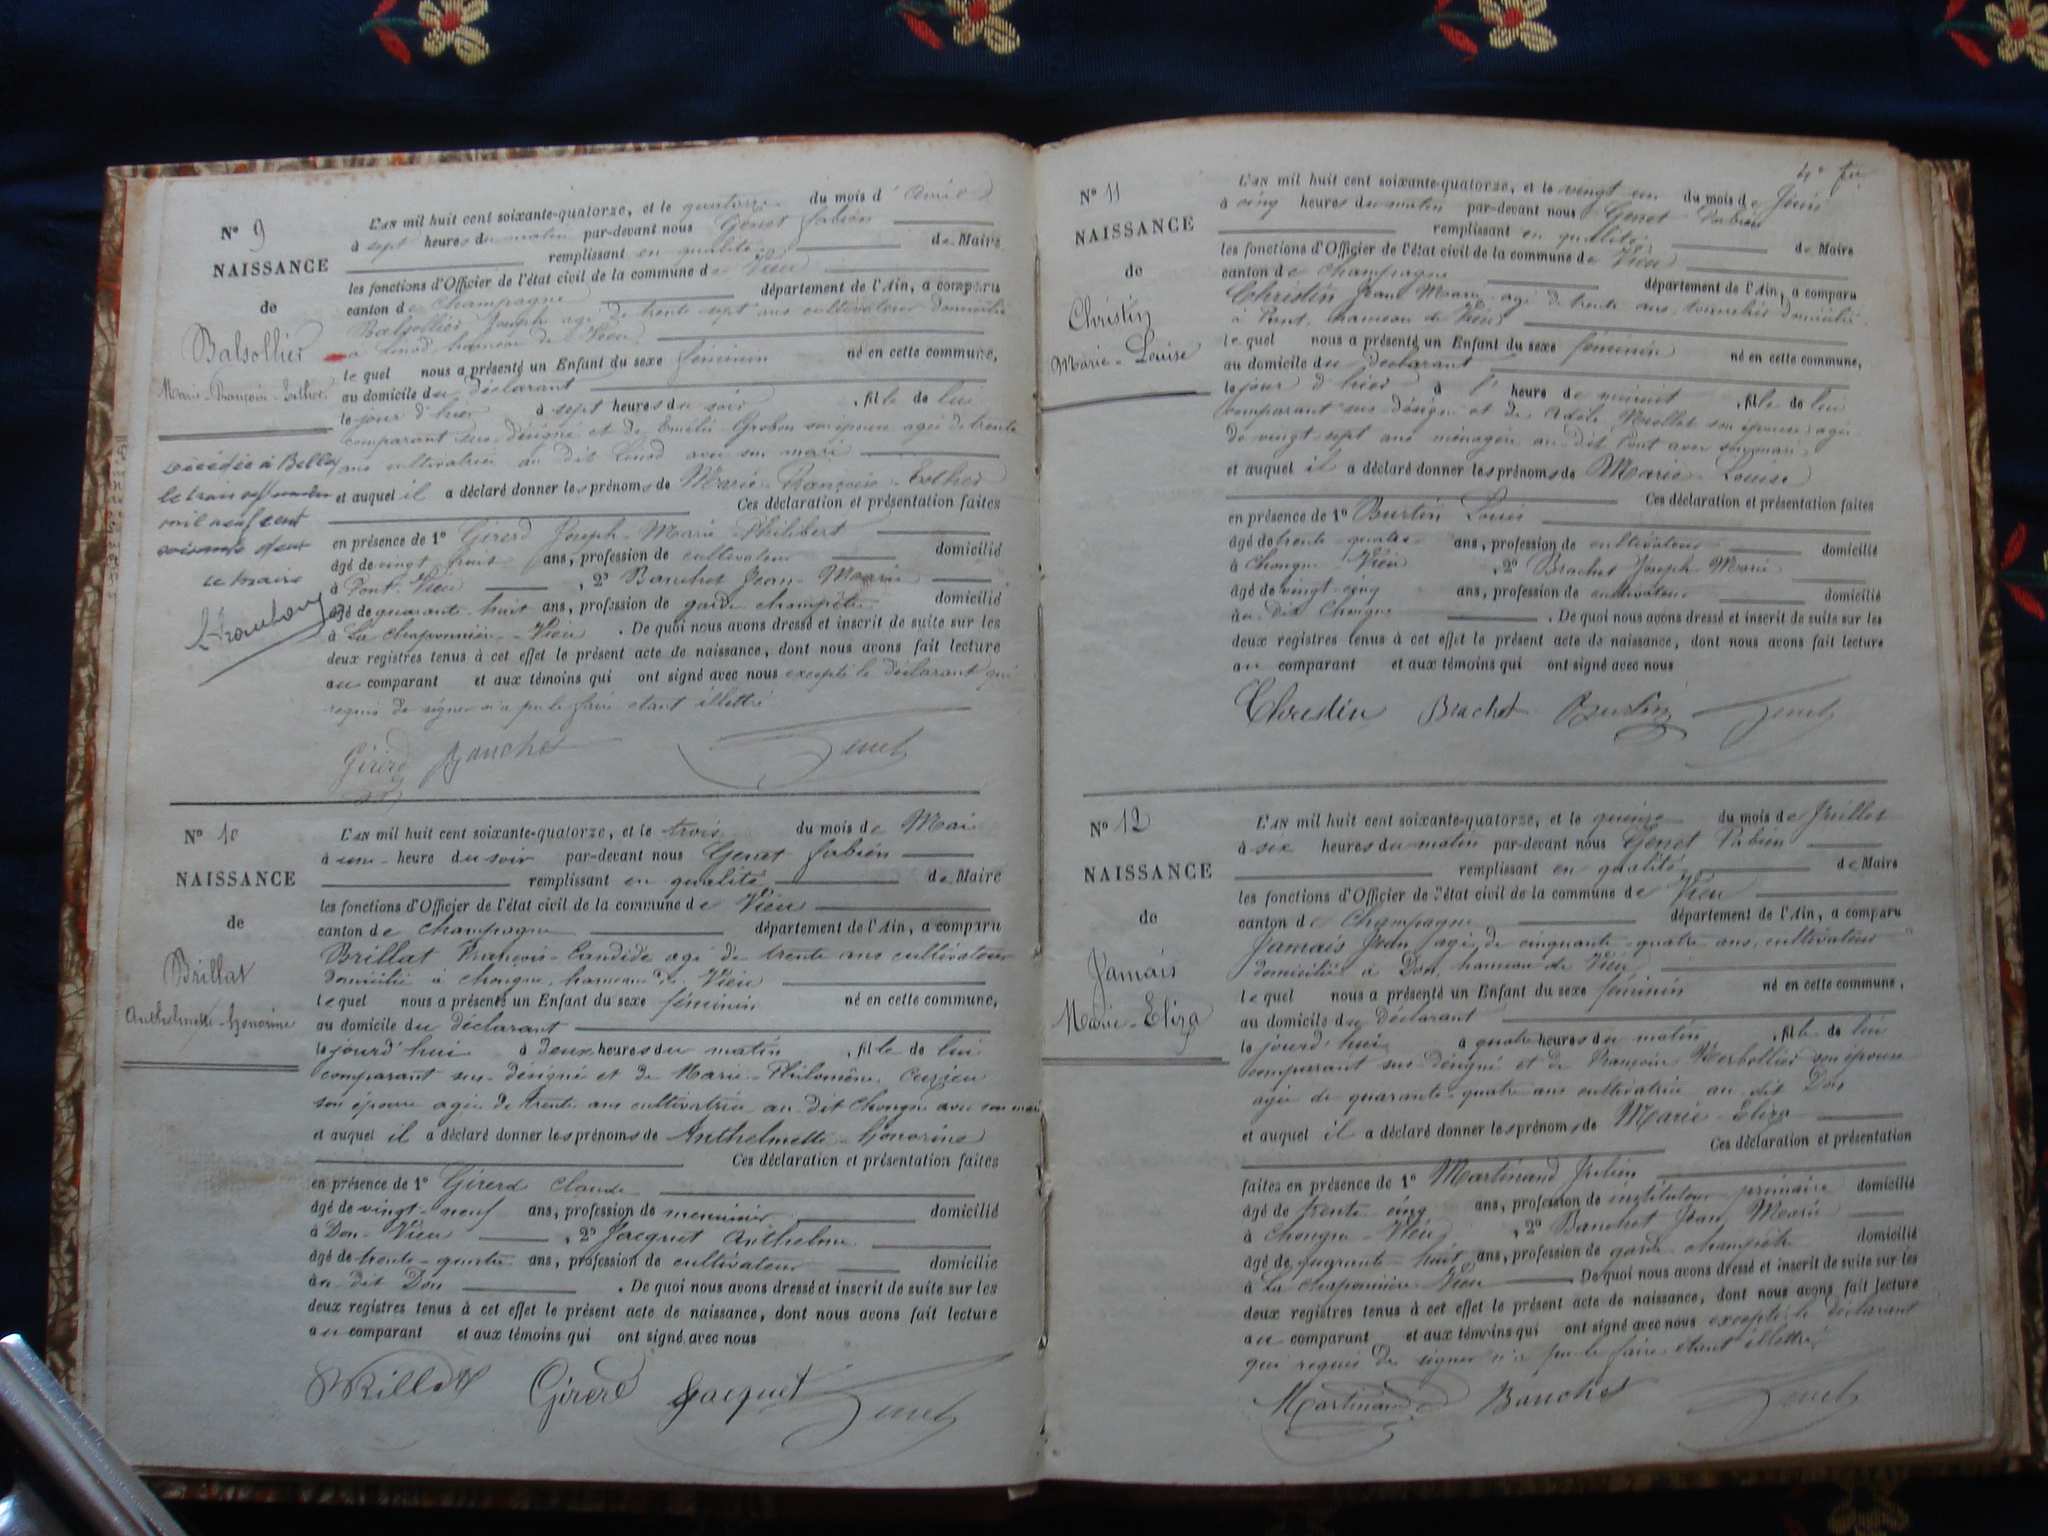 N° 9
NAISSANCE
de
Balsollier
Marie-Françoise-Esther
décédée à Belley
le trois
mil neuf cent
soixante deux
le maire
L'AN mil huit cent soixante-quatorze, et le quatorze du mois d'Avril
à sept heures du matin par-devant nous Genet fabien
remplissant en qualité de Maire
les fonctions d'Officier de l'état civil de la commune de Vieu
canton de Champagne département de l'Ain, a comparu
Balsollier Joseph agé de trente sept ans cultivateur domicilié
à Linod hameau de Vieu
lequel nous a présenté un Enfant du sexe féminin né en cette commune,
au domicile du déclarant
le jour d'hier à sept heures du soir, fille de lui
comparant sus-désigné et de Emélie Grobon son épouse agée de trente
ans cultivatrice au dit Linod avec son mari
et auquel il a déclaré donner les prénoms de Marie-Françoise-Esther
Ces déclaration et présentation faites
en présence de 1° Girerd Joseph-Marie-Philibert
âgé de vingt huit ans, profession de cultivateur domicilié
à Pont-Vieu, 2° Banchet Jean-Marie
âgé de quarante-huit ans, profession de garde champêtre domicilié
à La chaponnière-Vieu. De quoi nous avons dressé et inscrit de suite sur les
deux registres tenus à cet effet le présent acte de naissance, dont nous avons fait lecture
au comparant et aux témoins qui ont signé avec nous excepté le déclarant qui
requis de signer n'a pu le faire etant illettré
Girerd Banchet Genet
N° 10
NAISSANCE
de
Brillat
Anthelmette-honorine
L'AN mil huit cent soixante-quatorze, et le trois du mois de Mai
à une heure du soir par-devant nous Genet fabien
remplissant en qualité de Maire
les fonctions d'Officier de l'état civil de la commune de Vieu
canton de Champagne département de l'Ain, a comparu
Brillat François-Candide agé de trente ans cultivateur
domicilié à chongne, hameau de Vieu
lequel nous a présenté un Enfant du sexe féminin né en cette commune,
au domicile du déclarant
le jourd'hui à deux heures du matin, fille de lui
comparant sus-désigné et de Marie-Philomène Cuzieu
son épouse agée de trente ans cultivatrice au dit Chongne avec son mari
et auquel il a déclaré donner les prénoms de Anthelmette-honorine
Ces déclaration et présentation faites
en présence de 1° Girerd Claude
âgé de vingt-neuf ans, profession de menuisier domicilié
à Don-Vieu, 2° Jacquet Anthelme
âgé de trente-quatre ans, profession de cultivateur domicilié
au dit Don. De quoi nous avons dressé et inscrit de suite sur les
deux registres tenus à cet effet le présent acte de naissance, dont nous avons fait lecture
au comparant et aux témoins qui ont signé avec nous
Brillat Girerd Jacquet Genet
4e
N° 11
NAISSANCE
de
Christin
Marie-Louise
L'AN mil huit cent soixante-quatorze, et le vingt un du mois de Juin
à cinq heures du matin par-devant nous Genet Fabien
remplissant en qualité de Maire
les fonctions d'Officier de l'état civil de la commune de Vieu
canton de Champagne département de l'Ain, a comparu
Christin Jean Marie agé de trente ans, domicilié
à Pont, hameau de Vieu
lequel nous a présenté un Enfant du sexe féminin né en cette commune,
au domicile du déclarant
le jour d'hier à l'heure de minuit, fille de lui
comparant sus-désigné et de Adèle Miollet son épouse agée
de vingt-sept ans ménagère au dit Pont avec son mari
et auquel il a déclaré donner les prénoms de Marie-Louise
Ces déclaration et présentation faites
en présence de 1° Burtin Louis
âgé de trente-quatre ans, profession de cultivateur domicilié
à Chongne-Vieu, 2° Brachet Joseph-Marie
âgé de vingt-cinq ans, profession de cultivateur domicilié
au dit Chongne. De quoi nous avons dressé et inscrit de suite sur les
deux registres tenus à cet effet le présent acte de naissance, dont nous avons fait lecture
au comparant et aux témoins qui ont signé avec nous
Christin Brachet Burtin Genet
N° 12
NAISSANCE
de
Jamais
Marie-Eliza
L'AN mil huit cent soixante-quatorze, et le quinze du mois de Juillet
à six heures du matin par-devant nous Genet Fabien
remplissant en qualité de Maire
les fonctions d'Officier de l'état civil de la commune de Vieu
canton de Champagne département de l'Ain, a comparu
Jamais Jean agé de cinquante-quatre ans, cultivateur
domicilié à Don, hameau de Vieu
lequel nous a présenté un Enfant du sexe féminin né en cette commune,
au domicile du déclarant
le jourd'hui à quatre heures du matin, fille de lui
comparant sus désigné et de Françoise son épouse
agée de quarante-quatre ans cultivatrice au dit Don
et auquel il a déclaré donner les prénoms de Marie-Eliza
Ces déclaration et présentation
faites en présence de 1° Martinand Julien
âgé de trente cinq ans, profession de instituteur primaire domicilié
à Chongne-Vieu, 2° Banchet Jean Marie
âgé de quarante-huit ans, profession de garde champêtre domicilié
à La chaponnière Vieu De quoi nous avons dressé et inscrit de suite sur les
deux registres tenus à cet effet le présent acte de naissance, dont nous avons fait lecture
au comparant et aux témoins qui ont signé avec nous excepté le déclarant
qui requis de signer n'a pu le faire etant illettré
Martinand Banchet Genet